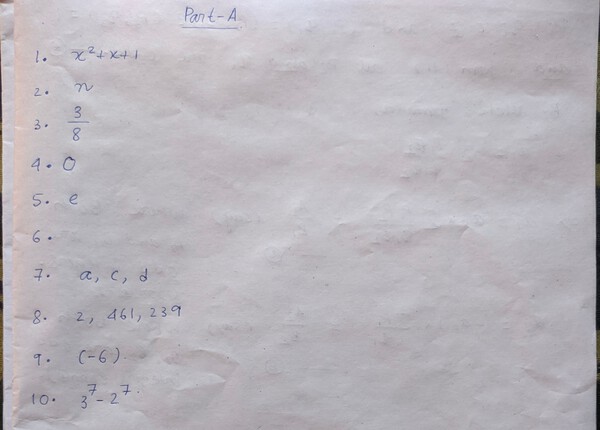 Part-A
1. x²+x+1
2. n
3. 3/8
4. 0
5. e
6.
7. a, c, d
8. 2, 461, 239
9. (-6).
10. 3⁷-2⁷.